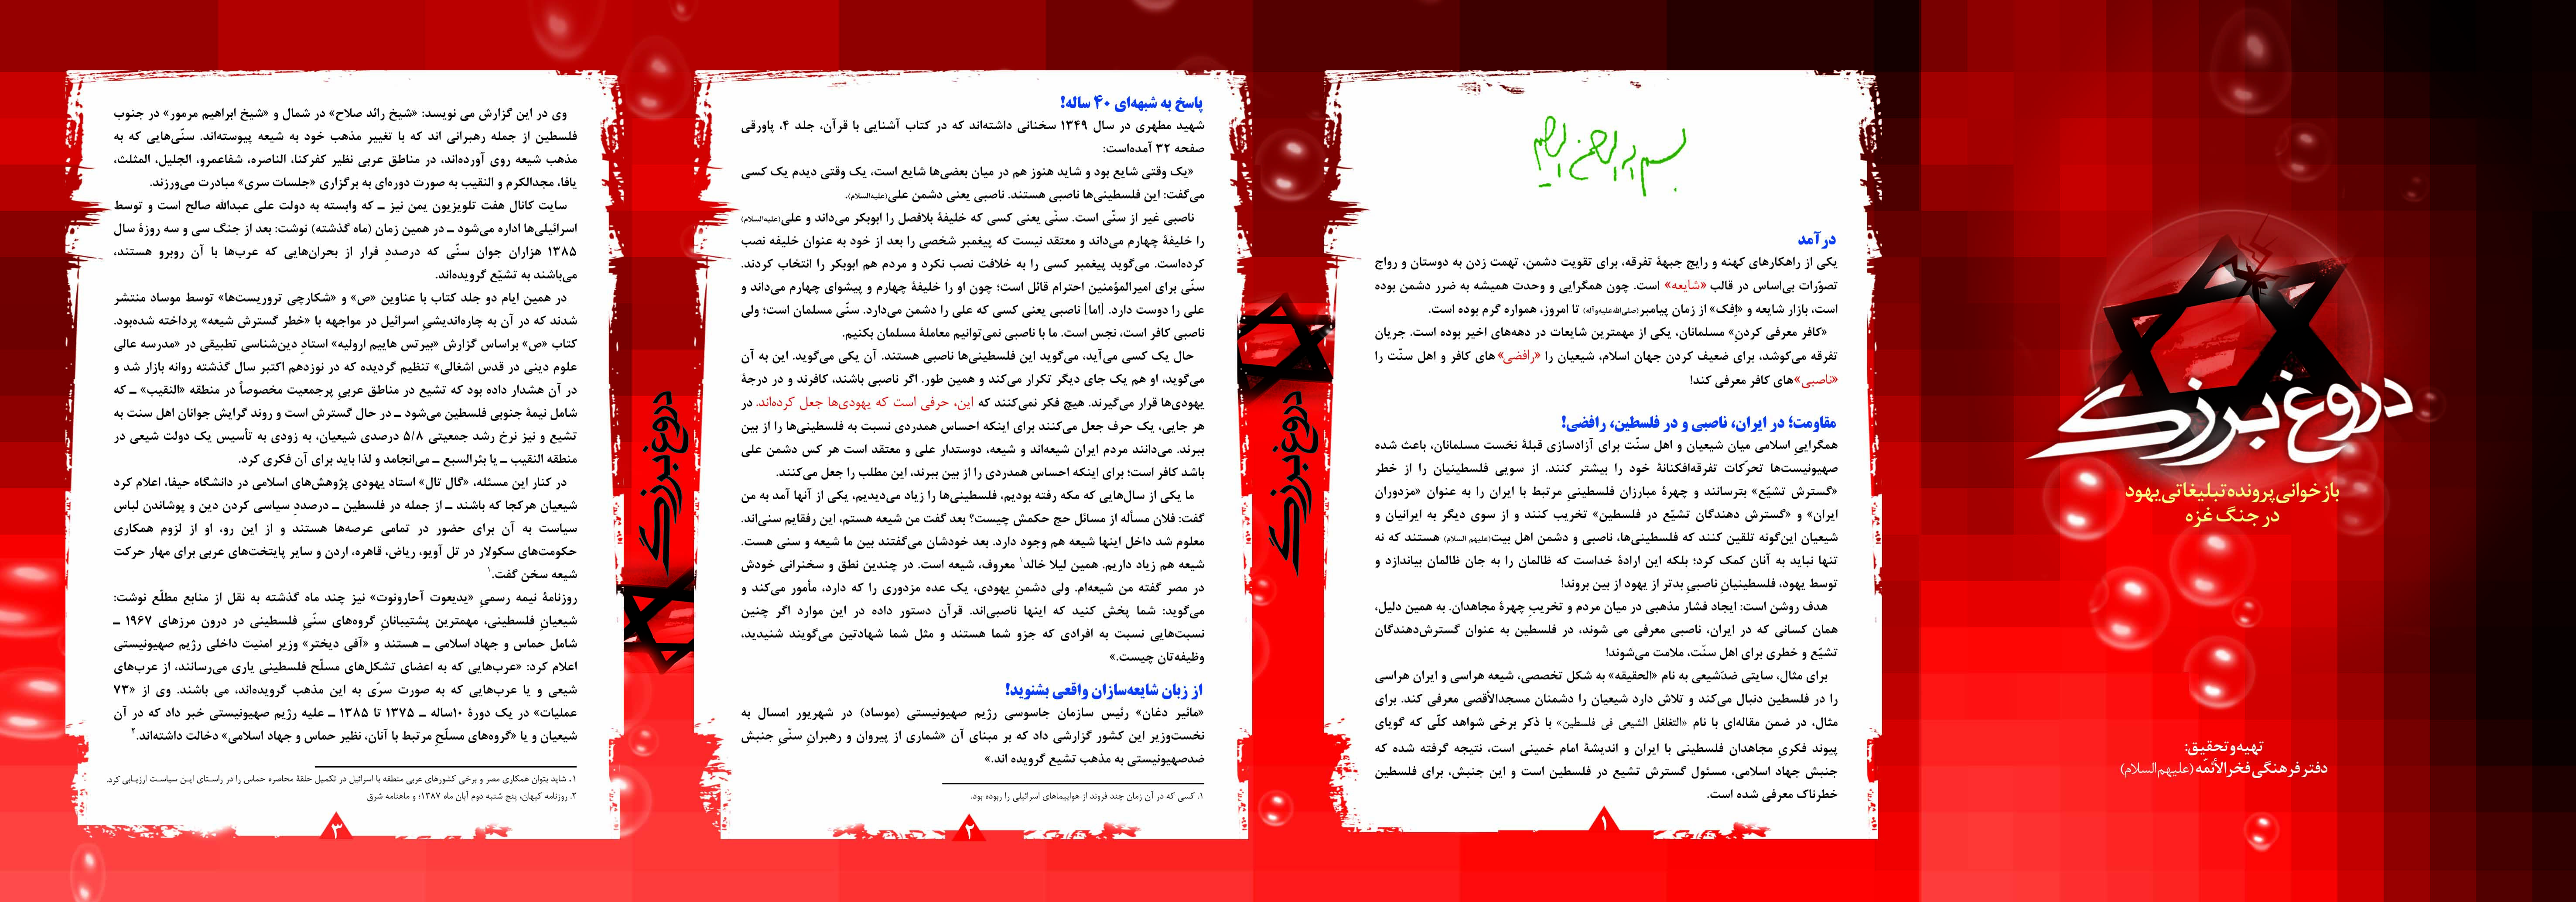 دروغ بزرگ
بازخوانی پرونده تبلیغاتی یهود
در جنگ غزه
تهیه و تحقیق:
دفتر فرهنگی فخرالأئمّه (علیهم‌السلام)
بسم الله الرحمن الرحیم
درآمد
یکی از راهکارهای کهنه و رایج جبههٔ تفرقه، برای تقویت دشمن، تهمت زدن به دوستان و رواج
تصوّرات بی‌اساس در قالب «شایعه» است. چون همگرایی و وحدت همیشه به ضرر دشمن بوده
است، بازار شایعه و «اِفک» از زمان پیامبر(صلی‌الله‌علیه‌وآله) تا امروز، همواره گرم بوده است.
«کافر معرفی کردنِ» مسلمانان، یکی از مهمترین شایعات در دهه‌های اخیر بوده است. جریان
تفرقه می‌کوشد، برای ضعیف کردن جهان اسلام، شیعیان را «رافضی»های کافر و اهل سنّت را
«ناصبی»های کافر معرفی کند!
مقاومت؛ در ایران، ناصبی و در فلسطین، رافضی!
همگراییِ اسلامی میان شیعیان و اهل سنّت برای آزادسازی قبلهٔ نخست مسلمانان، باعث شده
صهیونیست‌ها تحرّکات تفرقه‌افکنانهٔ خود را بیشتر کنند. از سویی فلسطینیان را از خطر
«گسترش تشیّع» بترسانند و چهرهٔ مبارزان فلسطینیِ مرتبط با ایران را به عنوان «مزدوران
ایران» و «گسترش دهندگان تشیّع در فلسطین» تخریب کنند و از سوی دیگر به ایرانیان و
شیعیان این‌گونه تلقین کنند که فلسطینی‌ها، ناصبی و دشمن اهل بیت(علیهم السلام) هستند که نه
تنها نباید به آنان کمک کرد؛ بلکه این ارادهٔ خداست که ظالمان را به جان ظالمان بیاندازد و
توسط یهود، فلسطینیانِ ناصبیِ بدتر از یهود از بین بروند!
هدف روشن است: ایجاد فشار مذهبی در میان مردم و تخریبِ چهرهٔ مجاهدان. به همین دلیل،
همان کسانی که در ایران، ناصبی معرفی می شوند، در فلسطین به عنوان گسترش‌دهندگان
تشیّع و خطری برای اهل سنّت، ملامت می‌شوند!
برای مثال، سایتی ضدّشیعی به نام «الحقیقه» به شکل تخصصی، شیعه هراسی و ایران هراسی
را در فلسطین دنبال می‌کند و تلاش دارد شیعیان را دشمنان مسجدالأقصی معرفی کند. برای
مثال، در ضمن مقاله‌ای با نام «التغلغل الشیعی فی فلسطین» با ذکر برخی شواهد کلّی که گویای
پیوند فکریِ مجاهدان فلسطینی با ایران و اندیشهٔ امام خمینی است، نتیجه گرفته شده که
جنبش جهاد اسلامی، مسئول گسترش تشیع در فلسطین است و این جنبش، برای فلسطین
خطرناک معرفی شده است.
۱
دروغ بزرگ
پاسخ به شبهه‌ای ۴۰ ساله!
شهید مطهری در سال ۱۳۴۹ سخنانی داشته‌اند که در کتاب آشنایی با قرآن، جلد ۴، پاورقی
صفحه ۳۲ آمده‌است:
«یک وقتی شایع بود و شاید هنوز هم در میان بعضی‌ها شایع است، یک وقتی دیدم یک کسی
می‌گفت: این فلسطینی‌ها ناصبی هستند. ناصبی یعنی دشمن علی(علیه‌السلام).
ناصبی غیر از سنّی است. سنّی یعنی کسی که خلیفهٔ بلافصل را ابوبکر می‌داند و علی(علیه‌السلام)
را خلیفهٔ چهارم می‌داند و معتقد نیست که پیغمبر شخصی را بعد از خود به عنوان خلیفه نصب
کرده‌است. می‌گوید پیغمبر کسی را به خلافت نصب نکرد و مردم هم ابوبکر را انتخاب کردند.
سنّی برای امیرالمؤمنین احترام قائل است؛ چون او را خلیفهٔ چهارم و پیشوای چهارم می‌داند و
علی را دوست دارد. [اما] ناصبی یعنی کسی که علی را دشمن می‌دارد. سنّی مسلمان است؛ ولی
ناصبی کافر است، نجس است. ما با ناصبی نمی‌توانیم معاملهٔ مسلمان بکنیم.
حال یک کسی می‌آید، می‌گوید این فلسطینی‌ها ناصبی هستند. آن یکی می‌گوید. این به آن
می‌گوید، او هم یک جای دیگر تکرار می‌کند و همین طور. اگر ناصبی باشند، کافرند و در درجهٔ
یهودی‌ها قرار می‌گیرند. هیچ فکر نمی‌کنند که این، حرفی است که یهودی‌ها جعل کرده‌اند. در
هر جایی، یک حرف جعل می‌کنند برای اینکه احساس همدردی نسبت به فلسطینی‌ها را از بین
ببرند. می‌دانند مردم ایران شیعه‌اند و شیعه، دوستدار علی و معتقد است هر کس دشمن علی
باشد کافر است؛ برای اینکه احساس همدردی را از بین ببرند، این مطلب را جعل می‌کنند.
ما یکی از سال‌هایی که مکه رفته بودیم، فلسطینی‌ها را زیاد می‌دیدیم، یکی از آنها آمد به من
گفت: فلان مسأله از مسائل حج حکمش چیست؟ بعد گفت من شیعه هستم، این رفقایم سنی‌اند.
معلوم شد داخل اینها شیعه هم وجود دارد. بعد خودشان می‌گفتند بین ما شیعه و سنی هست.
شیعه هم زیاد داریم. همین لیلا خالد۱ معروف، شیعه است. در چندین نطق و سخنرانی خودش
در مصر گفته من شیعه‌ام. ولی دشمنِ یهودی، یک عده مزدوری را که دارد، مأمور می‌کند و
می‌گوید: شما پخش کنید که اینها ناصبی‌اند. قرآن دستور داده در این موارد اگر چنین
نسبت‌هایی نسبت به افرادی که جزو شما هستند و مثل شما شهادتین می‌گویند شنیدید،
وظیفه‌تان چیست.»
از زبان شایعه‌سازان واقعی بشنوید!
«مائیر دغان» رئیس سازمان جاسوسی رژیم صهیونیستی (موساد) در شهریور امسال به
نخست‌وزیر این کشور گزارشی داد که بر مبنای آن «شماری از پیروان و رهبرانِ سنّیِ جنبش
ضدصهیونیستی به مذهب تشیع گرویده اند.»
۱. کسی که در آن زمان چند فروند از هواپیماهای اسرائیلی را ربوده بود.
۲
دروغ بزرگ
وی در این گزارش می نویسد: «شیخ رائد صلاح» در شمال و «شیخ ابراهیم مرمور» در جنوب
فلسطین از جمله رهبرانی اند که با تغییر مذهب خود به شیعه پیوسته‌اند. سنّی‌هایی که به
مذهب شیعه روی آورده‌اند، در مناطق عربی نظیر کفرکنا، الناصره، شفاعمرو، الجلیل، المثلث،
یافا، مجدالکرم و النقیب به صورت دوره‌ای به برگزاری «جلسات سری» مبادرت می‌ورزند.
سایت کانال هفت تلویزیون یمن نیز ــ که وابسته به دولت علی عبدالله صالح است و توسط
اسرائیلی‌ها اداره می‌شود ــ در همین زمان (ماه گذشته) نوشت: بعد از جنگ سی و سه روزهٔ سال
۱۳۸۵ هزاران جوان سنّی که درصددِ فرار از بحران‌هایی که عرب‌ها با آن روبرو هستند،
می‌باشند به تشیّع گرویده‌اند.
در همین ایام دو جلد کتاب با عناوین «ص» و «شکارچی تروریست‌ها» توسط موساد منتشر
شدند که در آن به چاره‌اندیشیِ اسرائیل در مواجهه با «خطر گسترش شیعه» پرداخته شده‌بود.
کتاب «ص» براساس گزارش «بیرتس هاییم ارولیه» استادِ دین‌شناسی تطبیقی در «مدرسه عالی
علوم دینی در قدس اشغالی» تنظیم گردیده که در نوزدهم اکتبر سال گذشته روانه بازار شد و
در آن هشدار داده بود که تشیع در مناطق عربیِ پرجمعیت مخصوصاً در منطقه «النقیب» ــ که
شامل نیمهٔ جنوبی فلسطین می‌شود ــ در حال گسترش است و روند گرایش جوانان اهل سنت به
تشیع و نیز نرخ رشد جمعیتی ۵/۸ درصدی شیعیان، به زودی به تأسیس یک دولت شیعی در
منطقه النقیب ــ یا بئرالسبع ــ می‌انجامد و لذا باید برای آن فکری کرد.
در کنار این مسئله، «گال تال» استاد یهودی پژوهش‌های اسلامی در دانشگاه حیفا، اعلام کرد
شیعیان هرکجا که باشند ــ از جمله در فلسطین ــ درصددِ سیاسی کردن دین و پوشاندن لباس
سیاست به آن برای حضور در تمامی عرصه‌ها هستند و از این رو، او از لزوم همکاری
حکومت‌های سکولار در تل آویو، ریاض، قاهره، اردن و سایر پایتخت‌های عربی برای مهار حرکت
شیعه سخن گفت.۱
روزنامهٔ نیمه رسمیِ «یدیعوت آحارونوت» نیز چند ماه گذشته به نقل از منابع مطلّع نوشت:
شیعیانِ فلسطینی، مهمترین پشتیبانانِ گروه‌های سنّیِ فلسطینی در درون مرزهای ۱۹۶۷ ــ
شامل حماس و جهاد اسلامی ــ هستند و «آفی دیختر» وزیر امنیت داخلی رژیم صهیونیستی
اعلام کرد: «عرب‌هایی که به اعضای تشکل‌های مسلّح فلسطینی یاری می‌رسانند، از عرب‌های
شیعی و یا عرب‌هایی که به صورت سرّی به این مذهب گرویده‌اند، می باشند. وی از «۷۳
عملیات» در یک دورهٔ ۱۰ساله ــ ۱۳۷۵ تا ۱۳۸۵ ــ علیه رژیم صهیونیستی خبر داد که در آن
شیعیان و یا «گروه‌های مسلّحِ مرتبط با آنان، نظیر حماس و جهاد اسلامی» دخالت داشته‌اند.۲
۱. شاید بتوان همکاری مصر و برخی کشورهای عربی منطقه با اسرائیل در تکمیل حلقهٔ محاصره حماس را در راستای این سیاست ارزیابی کرد.
۲. روزنامه کیهان، پنج شنبه دوم آبان ماه ۱۳۸۷؛ و ماهنامه شرق
۳